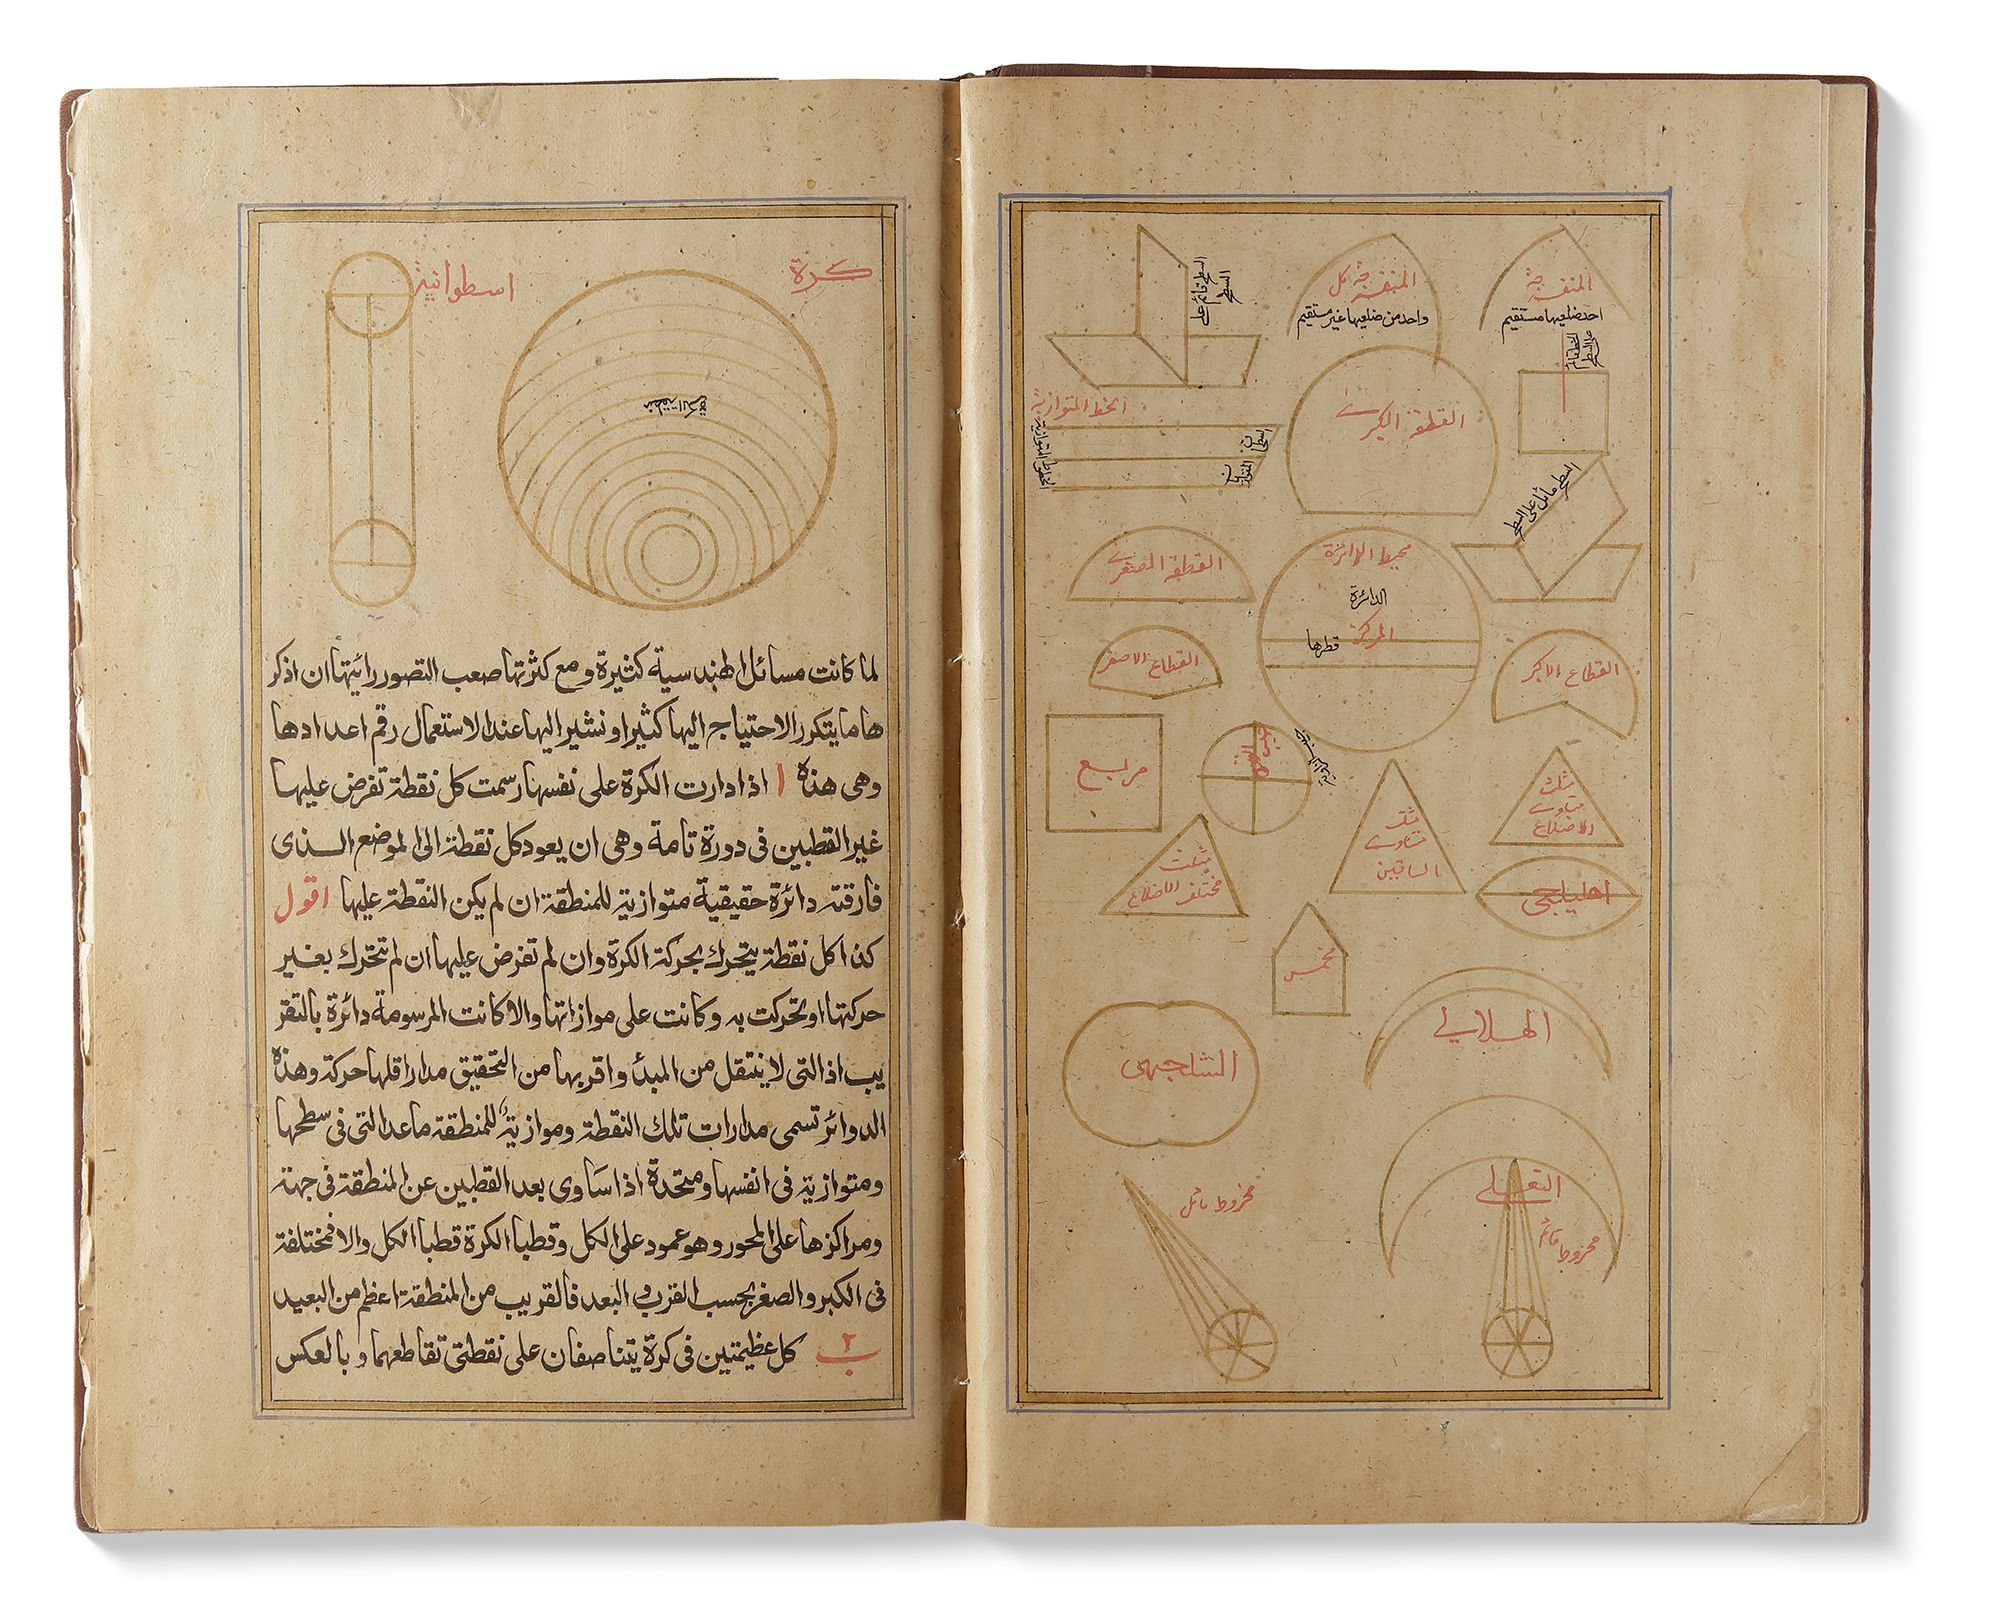 المنفرجة
احد ضلعيها مستقيم
المنفرجة كل
واحد من ضلعيها غير مستقيم
السطح قائم على
السطح
القطعة الكبرى
الخط المتوازية
الخطوط المتوازية
السطحان
المتوازيان
السطح مائل على السطح
محيط الدائرة
الدائرة
المركز
قطرها
القطعة الصغرى
القطاع الاكبر
القطاع الاصغر
مربع
مثلث
متساوى
الاضلاع
مثلث
متساوى
الساقين
مثلث
مختلف الاضلاع
اهليلجى
مخمس
الهلالى
الشلجمى
النعلى
مخروط قائم
مخروط مائل
كرة
اسطوانية
منطقة الكرة
لما كانت مسائل الهندسية كثيرة ومع كثرتها صعب التصور رائيتها ان اذكر
ها ما يتكرر الاحتياج اليها كثيرا ونشير اليها عند الاستعمال رقم اعدادها
وهى هذه ا اذا دارت الكرة على نفسها رسمت كل نقطة تفرض عليها
غير القطبين فى دورة تامة وهى ان يعود كل نقطة الى الموضع الذى
فارقته دائرة حقيقية متوازية للمنطقة ان لم يكن النقطة عليها اقول
كذا كل نقطة يتحرك بحركة الكرة وان لم تفرض عليها ان لم تتحرك بغير
حركتها او تحركت به وكانت على موازاتها والا كانت المرسومة دائرة بالتقر
يب اذ التى لا ينتقل من المبدأ واقربها من التحقيق مدار اقلها حركة وهذه
الدوائر تسمى مدارات تلك النقطة وموازية للمنطقة ما عدا التى فى سطحها
ومتوازية فى انفسها ومتحدة اذا ساوى بعد القطبين عن المنطقة فى جهة
ومراكزها على المحور وهو عمود على الكل وقطبا الكرة قطبا الكل والا فمختلفة
فى الكبر والصغر بحسب القرب و البعد فالقريب من المنطقة اعظم من البعيد
٢ ب كل عظيمتين فى كرة يتناصفان على نقطتى تقاطعهما و بالعكس